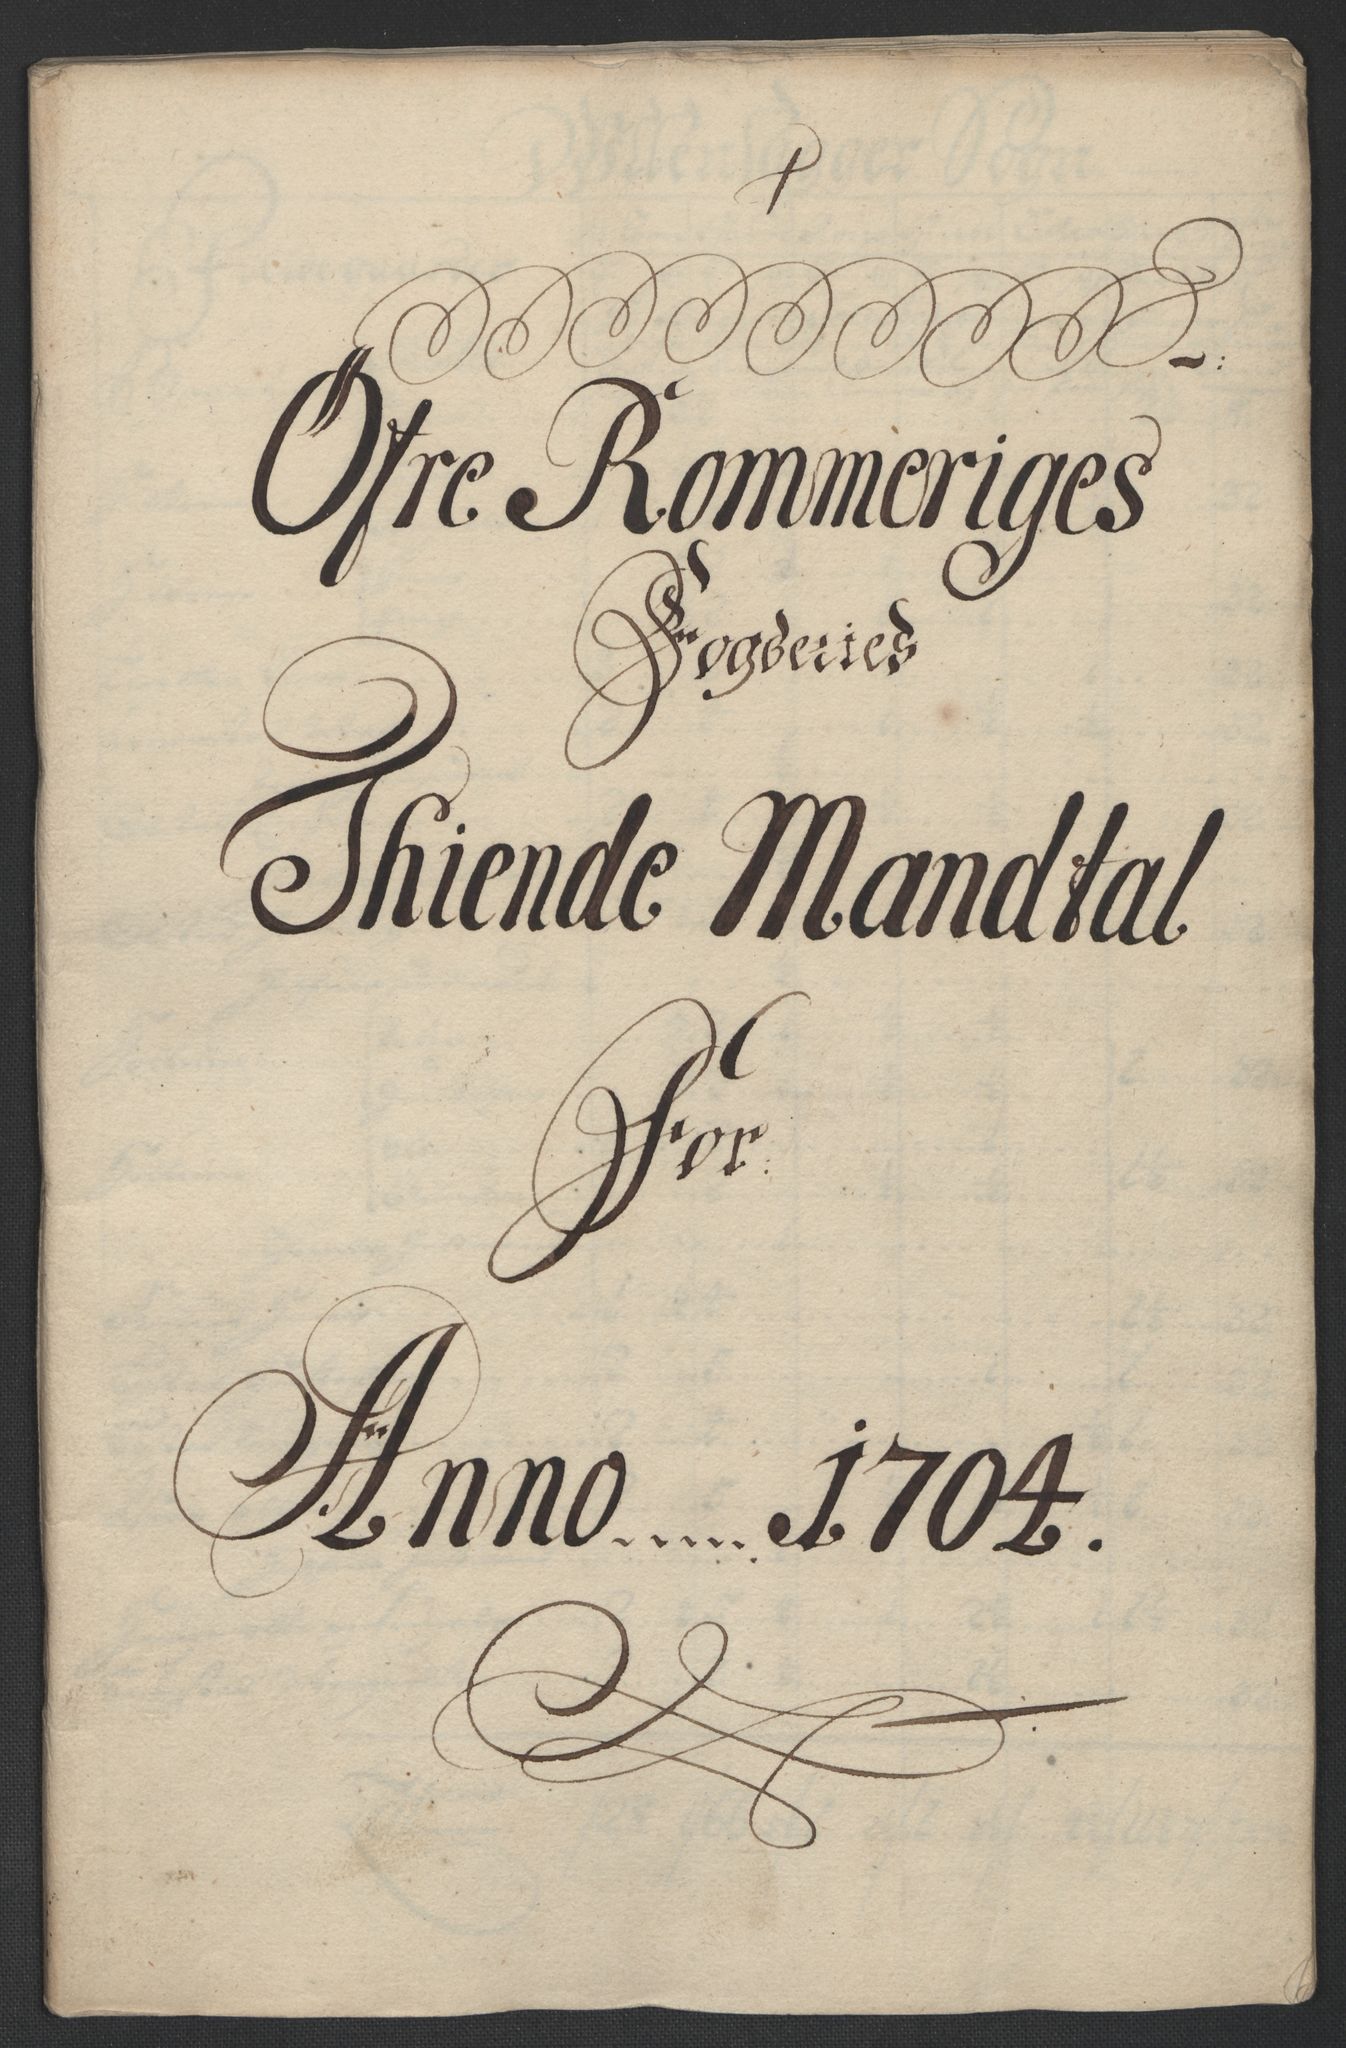 Ofre Rommeriges
Fogderies
Thiende Mandtal
For
Anno..... 1704.